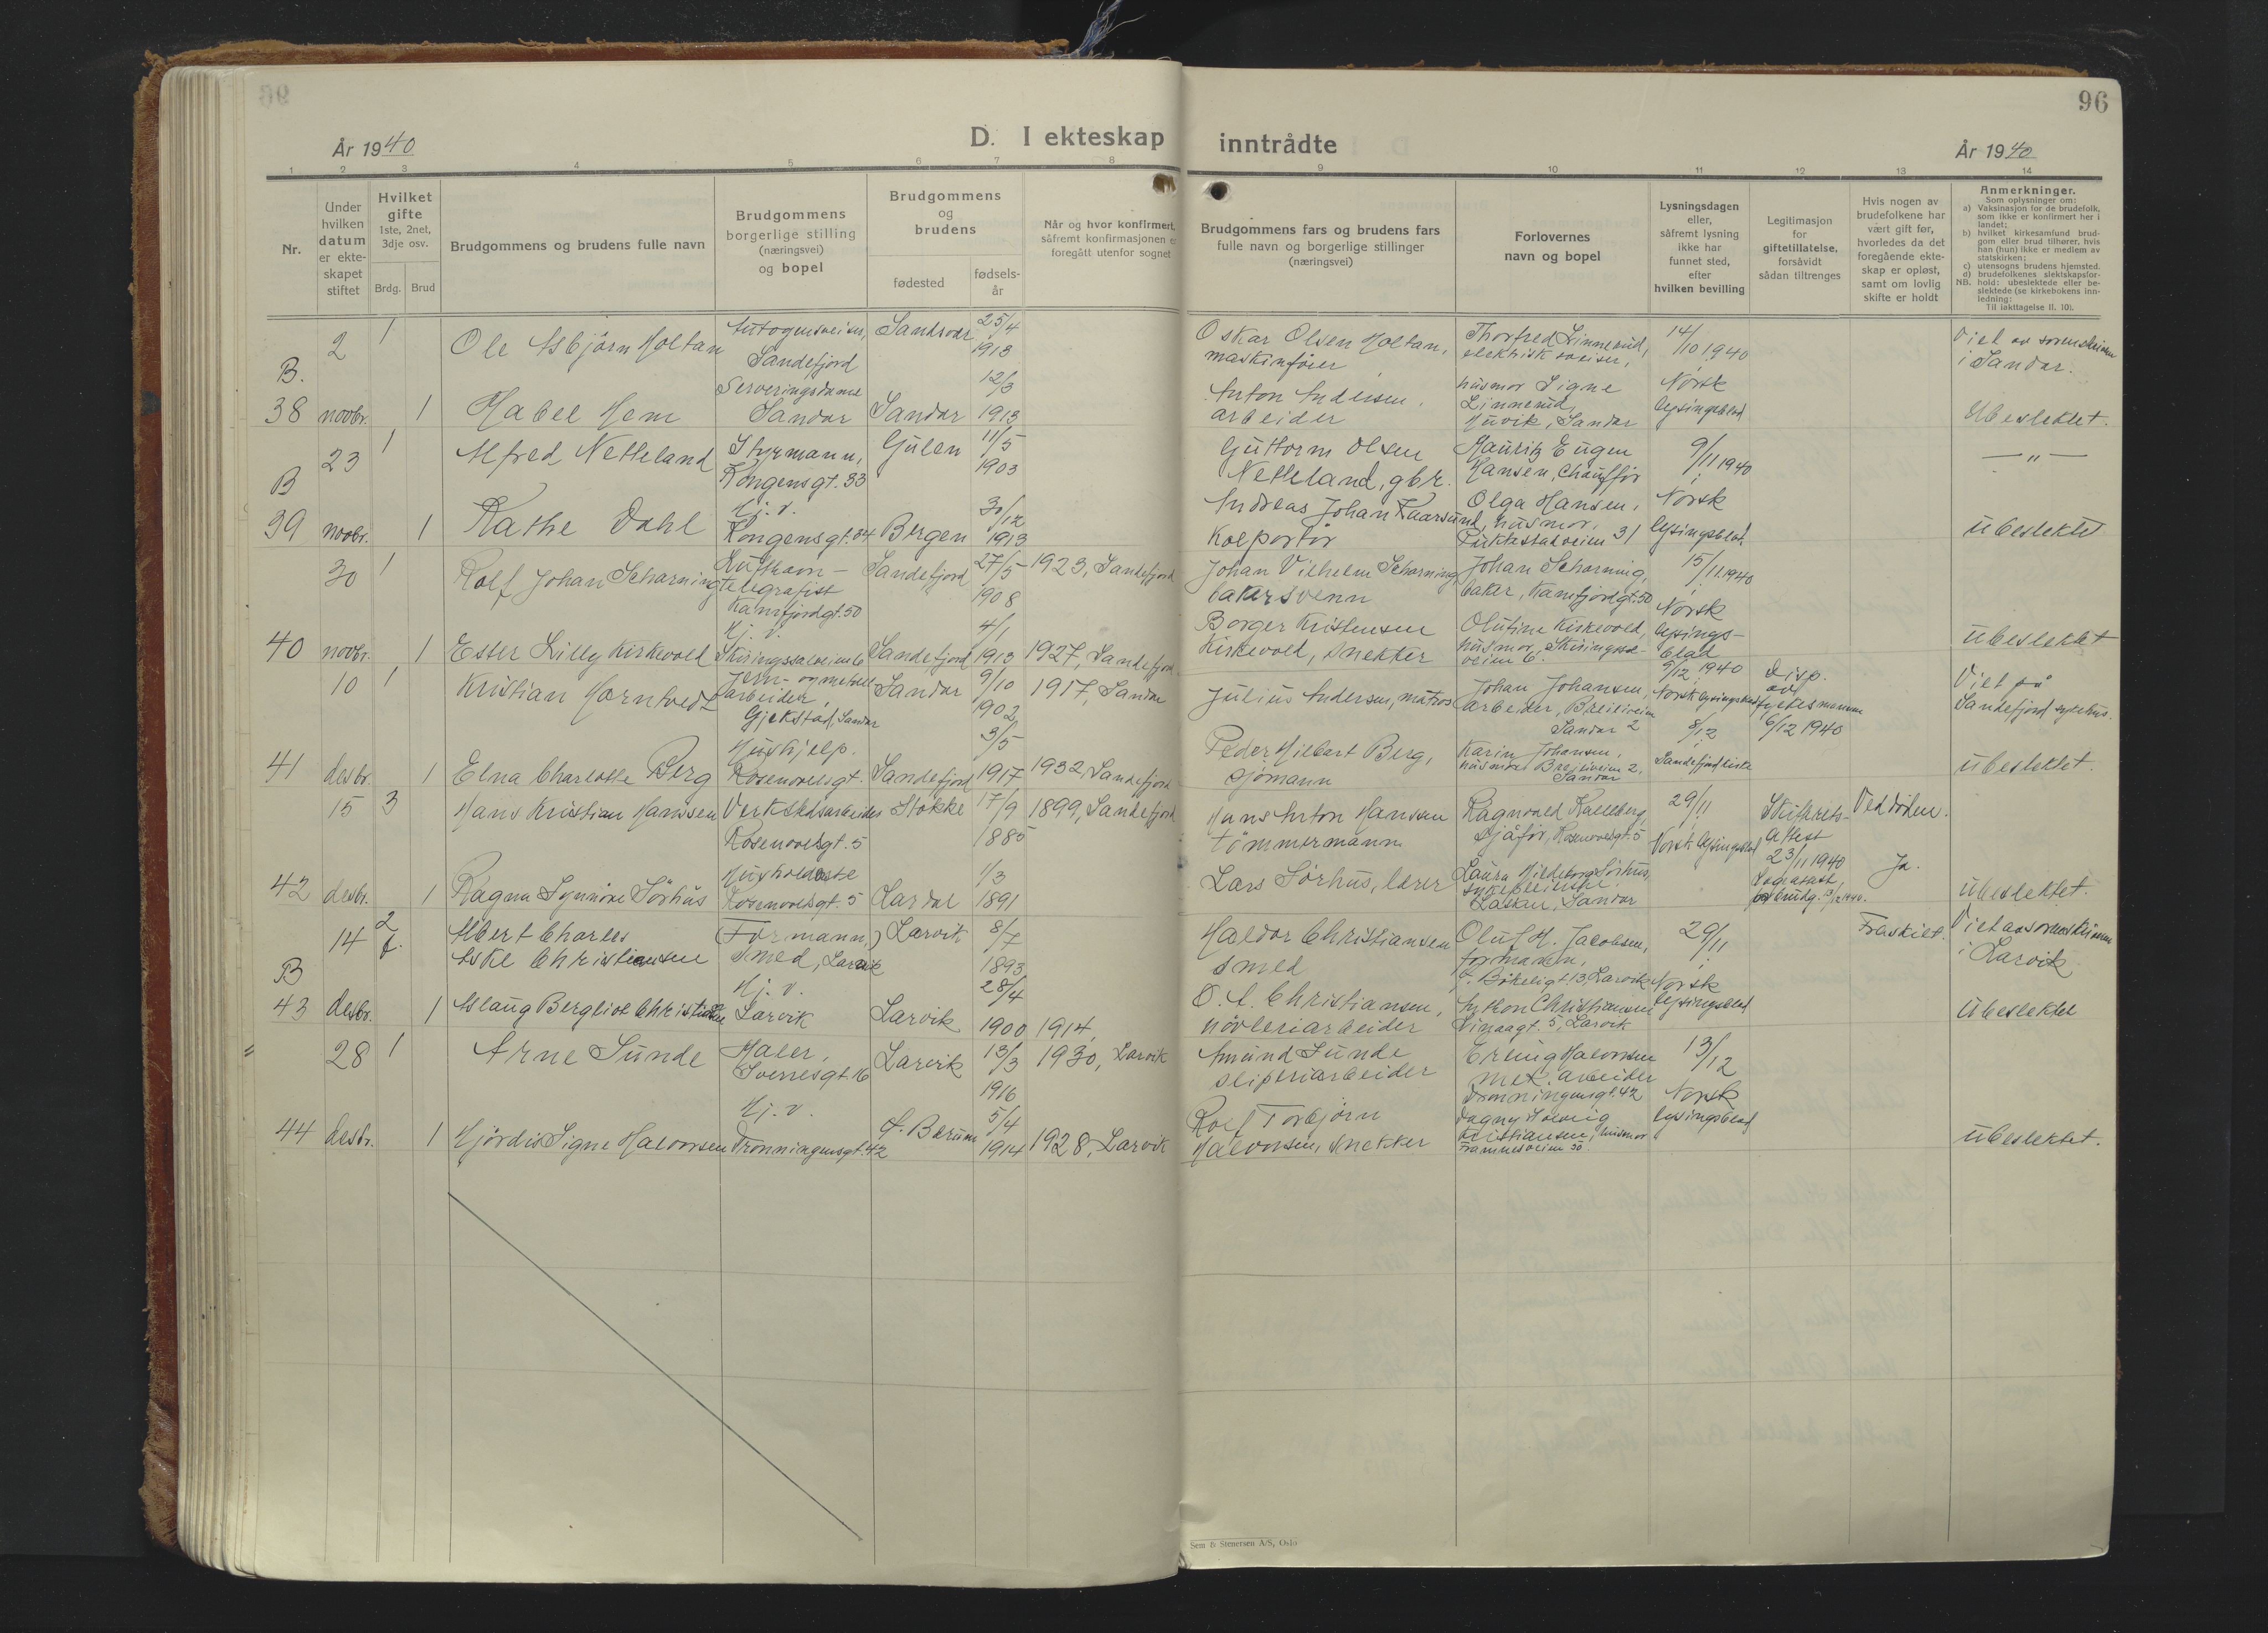 96
År 1940
D. I ekteskap inntrådte
År 1940
1 2 3 4 5 6 7 8 9 10 11 12 13 14
Nr.
Under hvilken datum er ekte-skapet stiftet
Hvilket gifte
1ste, 2net, 3dje osv.
Brdg. Brud
Brudgommens og brudens fulle navn
Brudgommens borgerlige stilling (næringsvei) og bopel
Brudgommens og brudens
fødested
fødsels-år
Når og hvor konfirmert, såfremt konfirmasjonen er foregått utenfor sognet
Brudgommens fars og brudens fars fulle navn og borgerlige stillinger (næringsvei)
Forlovernes navn og bopel
Lysningsdagen eller, såfremt lysning ikke har funnet sted, efter hvilken bevilling
Legitimasjon for giftetillatelse, forsåvidt sådan tiltrenges
Hvis nogen av brudefolkene har vært gift før, hvorledes da det foregående ekte-skap er opløst, samt om lovlig skifte er holdt
Anmerkninger.
Som oplysninger om:
a) Vaksinasjon for de brudefolk, som ikke er konfirmert her i landet;
b) hvilket kirkesamfund brud-gom eller brud tilhører, hvis han (hun) ikke er medlem av statskirken;
c) utensogns brudens hjemsted.
d) brudefolkenes slektskapsfor-hold: ubeslektede eller be-slektede (se kirkebokens inn-ledning:
NB.
Til iakttagelse II. 10).
2 1 Ole Asbjörn Holtan Autogensveiser, Sandefjord 25/4 1913
Oskar Olsen Holtan, maskinfører Thorfred Linnerud, elektrisk sveiser, 14/10 1940 Viet av sorenskriveren i Sandar.
B.
38 novbr. 1 Mabel Hem Serveringsdame Sandar Sandar 12/3 1913
Anton Andersen, arbeider husmor Signe Linnerud, Huvik, Sandar Norsk lysingsblad Ubeslektet.
23 1 Alfred Netteland Styrmann, Kongensgt. 33 Gulen 11/5 1903
Guttorm Olsen Netteland, gbr. Mauritz Eugen Hansen, chauffør 9/11 1940 — " —
B
39 novbr. 1 Kathe Dahl Hj. v. Kongensgt. 34 Bergen 30/12 1913
Andreas Johan Kaarsund, Kolportör Olga Hansen, husmor, 31 Norsk lysingsblad ubeslektet
30 1 Rolf Johan Scharning telegrafist Kamfjordgt. 50 Sandefjord 27/5 1908 1923, Sandefjord
Johan Vilhelm Scharning, bakersvenn Johan Scharning, baker, Kamfjordgt. 50 15/11 1940
40 novbr. 1 Ester Lilly Kirkevold Hj. v. Skiringssalveien 6 Sandefjord 4/1 1913 1927, Sandefjord
Borger Kristensen Kirkevold, snekker Olufine Kirkevold, husmor, Skiringssal-veien 6. Norsk lysings-blad ubeslektet
10 1 Kristian Horntvedt Jern- og metall-arbeider, Gjekstad, Sandar Sandar 9/10 1902 1917, Sandar
Julius Andersen, matros Johan Johansen, arbeider, Breiliveien 2 Sandar 9/12 1940 Norsk lysingsblad Disp. av fylkesmannen 6/12 1940 Viet på Sandefjord sykehus.
41 desbr. 1 Elna Charlotte Berg Hushjelp. Rosenvoldsgt. Sandefjord 3/5 1917 1932, Sandefjord
Peder Hilbart Berg, sjömann Karin Johansen, husmor Breiliveien 2, Sandar 8/12 Sandefjord kirke ubeslektet.
15 3 Hans Kristian Hanssen Verkstedsarbeider Rosenvoldsgt. 5 Stokke 17/9 1885 1899, Sandefjord
Hans Anton Hansen tömmermann Ragnvald Kalleberg, sjåför, Rosenvoldsgt. 5 29/11 Norsk lysingsblad Skifterets-attest 23/11 1940 Ved döden.
42 desbr. 1 Ragna Synnöve Sörhus Husholderske Rosenvoldsgt. 5 Lardal 1/3 1891
Lars Sörhus, lærer Laura Hildeborg Sörhus, sykepleierske, Sandar Ja. ubeslektet.
14 2 f. Albert Charles Askl Christiansen (Formann,) smed, Larvik Larvik 8/7 1893
Haldor Christiansen smed Oluf M. Jacobsen, formann, Larvik 29/11 Fraskilt. Viet av sorenskriveren i Larvik
B
43 desbr. 1 Aslaug Bergliot Christiansen Hj. v. Larvik Larvik 28/4 1900 1914,
O. A. Christiansen, hövleriarbeider Christiansen 5, Larvik Norsk lysingsblad ubeslektet
" 28 1 Arne Sunde Maler, Sverresgt. 16 Larvik 13/3 1916 1930, Larvik
Amund Sunde sliperiarbeider Erling Halvorsen mek. arbeider Dronningensgt. 42 13/12
44 desbr. 1 Hjördis Signe Halvorsen Hj. v. Dronningensgt. 42 Ø. Bærum 5/4 1914 1928, Larvik
Rolf Torbjörn Halvorsen, snekker Dagny Solveig Kristiansen, husmor Framnesveien 30. Norsk lysingsblad ubeslektet.
Sem & Stenersen A/S, Oslo